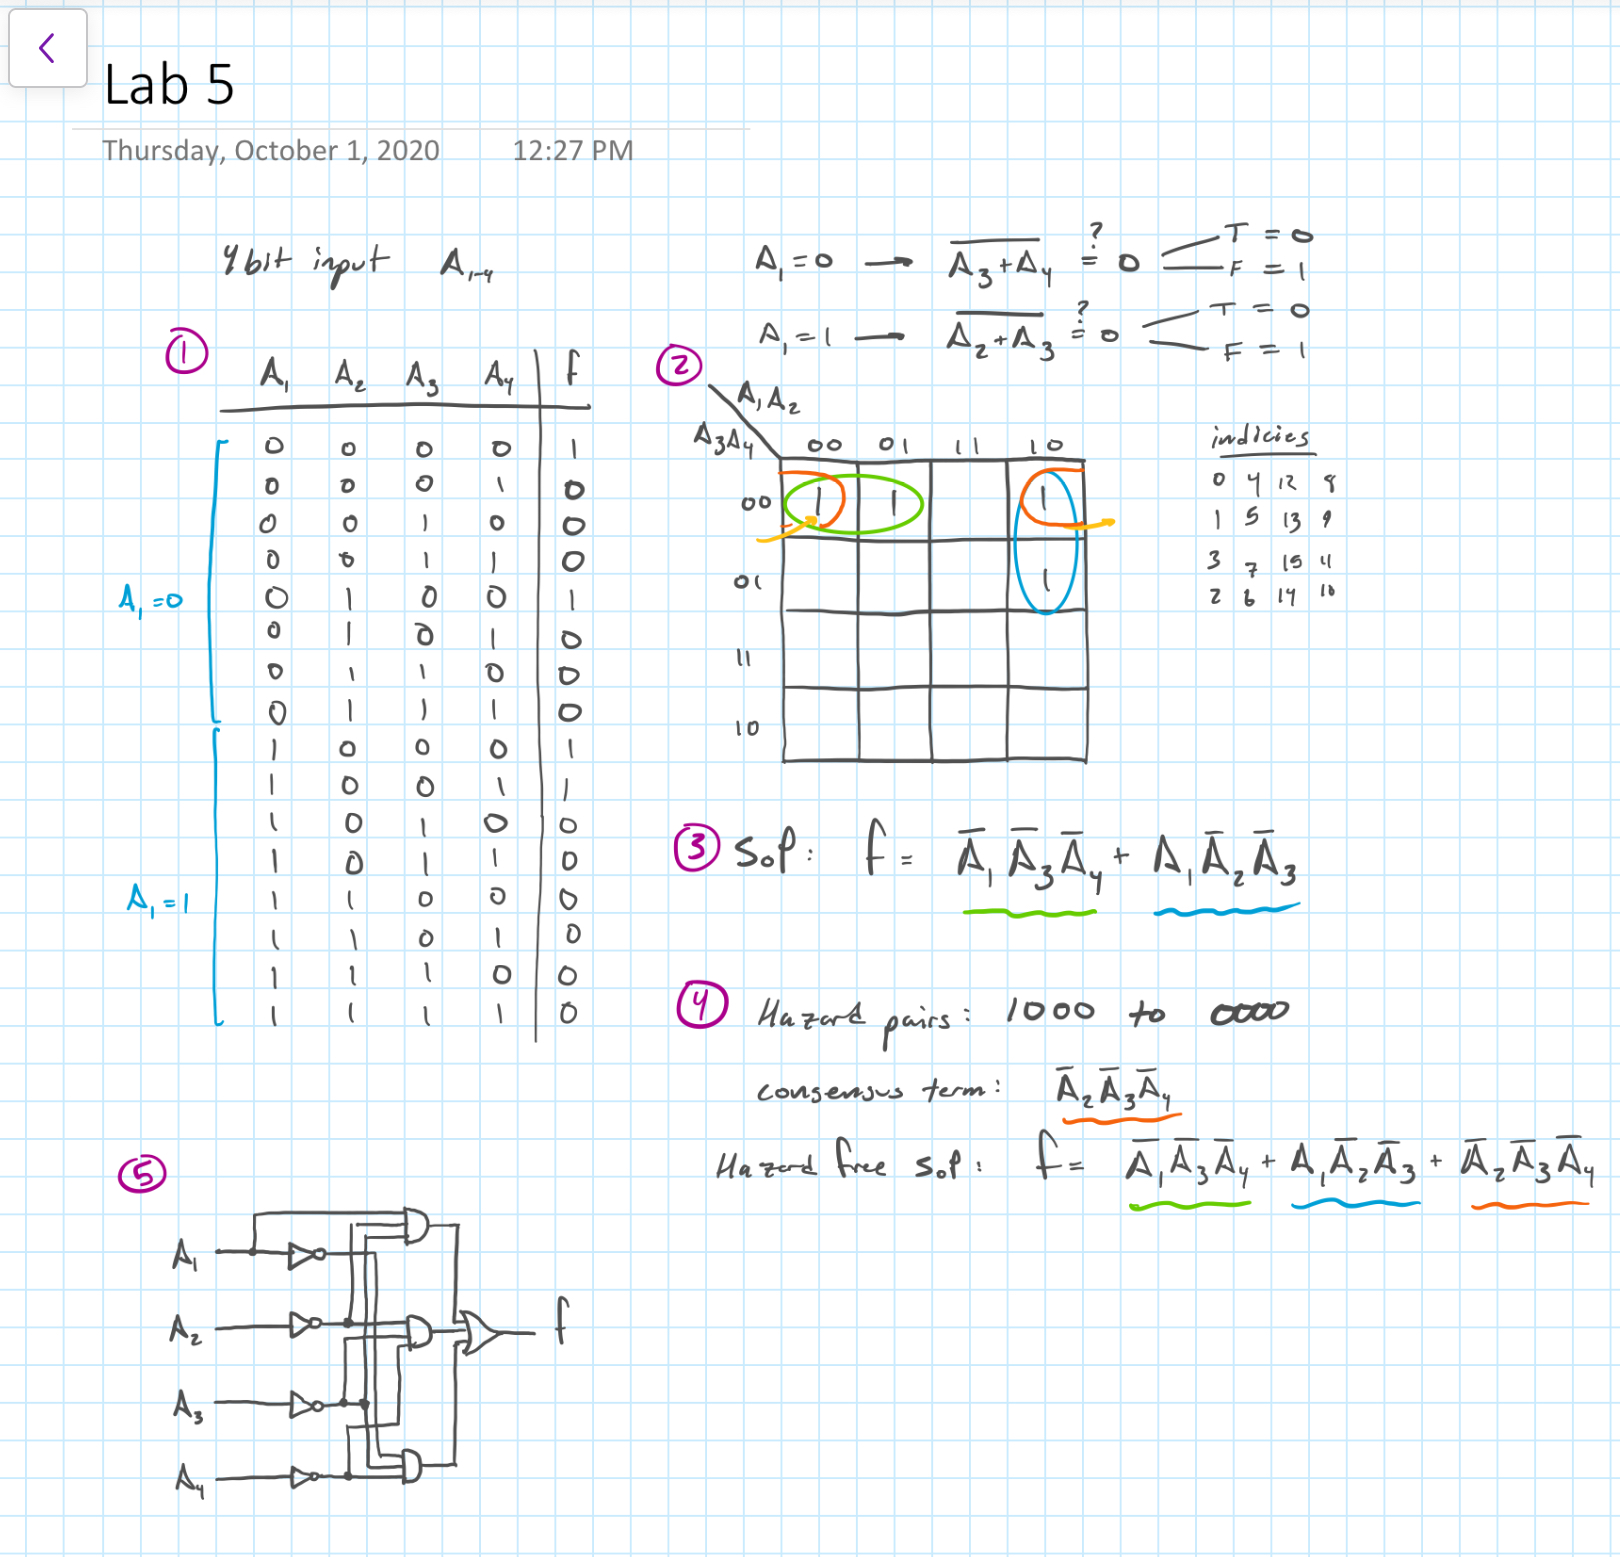 Lab 5
Thursday, October 1, 2020 12:27 PM
4 bit input A₁₋₄
A₁ = 0 → \overline{A₃+A₄} ≟ 0 T = 0
F = 1
A₁ = 1 — \overline{A₂+A₃} ≟ 0 T = 0
F = 1
①
A₁ A₂ A₃ A₄ f
0 0 0 0 1
0 0 0 1 0
0 0 1 0 0
0 0 1 1 0
0 1 0 0 1
0 1 0 1 0
0 1 1 0 0
0 1 1 1 0
1 0 0 0 1
1 0 0 1 1
1 0 1 0 0
1 0 1 1 0
1 1 0 0 0
1 1 0 1 0
1 1 1 0 0
1 1 1 1 0
A₁ = 0
A₁ = 1
②
A₁A₂
A₃A₄ 00 01 11 10
00 1 1 1
01 1
11
10
indicies
0 4 12 8
1 5 13 9
3 7 15 11
2 6 14 10
③ SoP: f = A̅₁A̅₃A̅₄ + A₁A̅₂A̅₃
④ Hazard pairs: 1000 to 0000
consensus term: A̅₂A̅₃A̅₄
Hazard free SoP: f = A̅₁A̅₃A̅₄ + A₁A̅₂A̅₃ + A̅₂A̅₃A̅₄
⑤
A₁
A₂ f
A₃
A₄